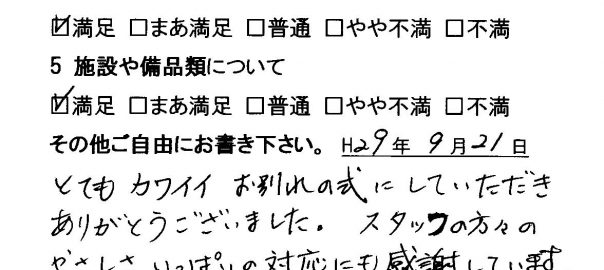 ☑満足 □まあ満足 □普通 □やや不満 □不満
5 施設や備品類について
☑満足 □まあ満足 □普通 □やや不満 □不満
その他ご自由にお書き下さい。 H29年 9月21日
とても カワイイ お別れの式に していただき
ありがとうございました。 スタッフの方々の
やさしさいっぱいの対応にも感謝しています